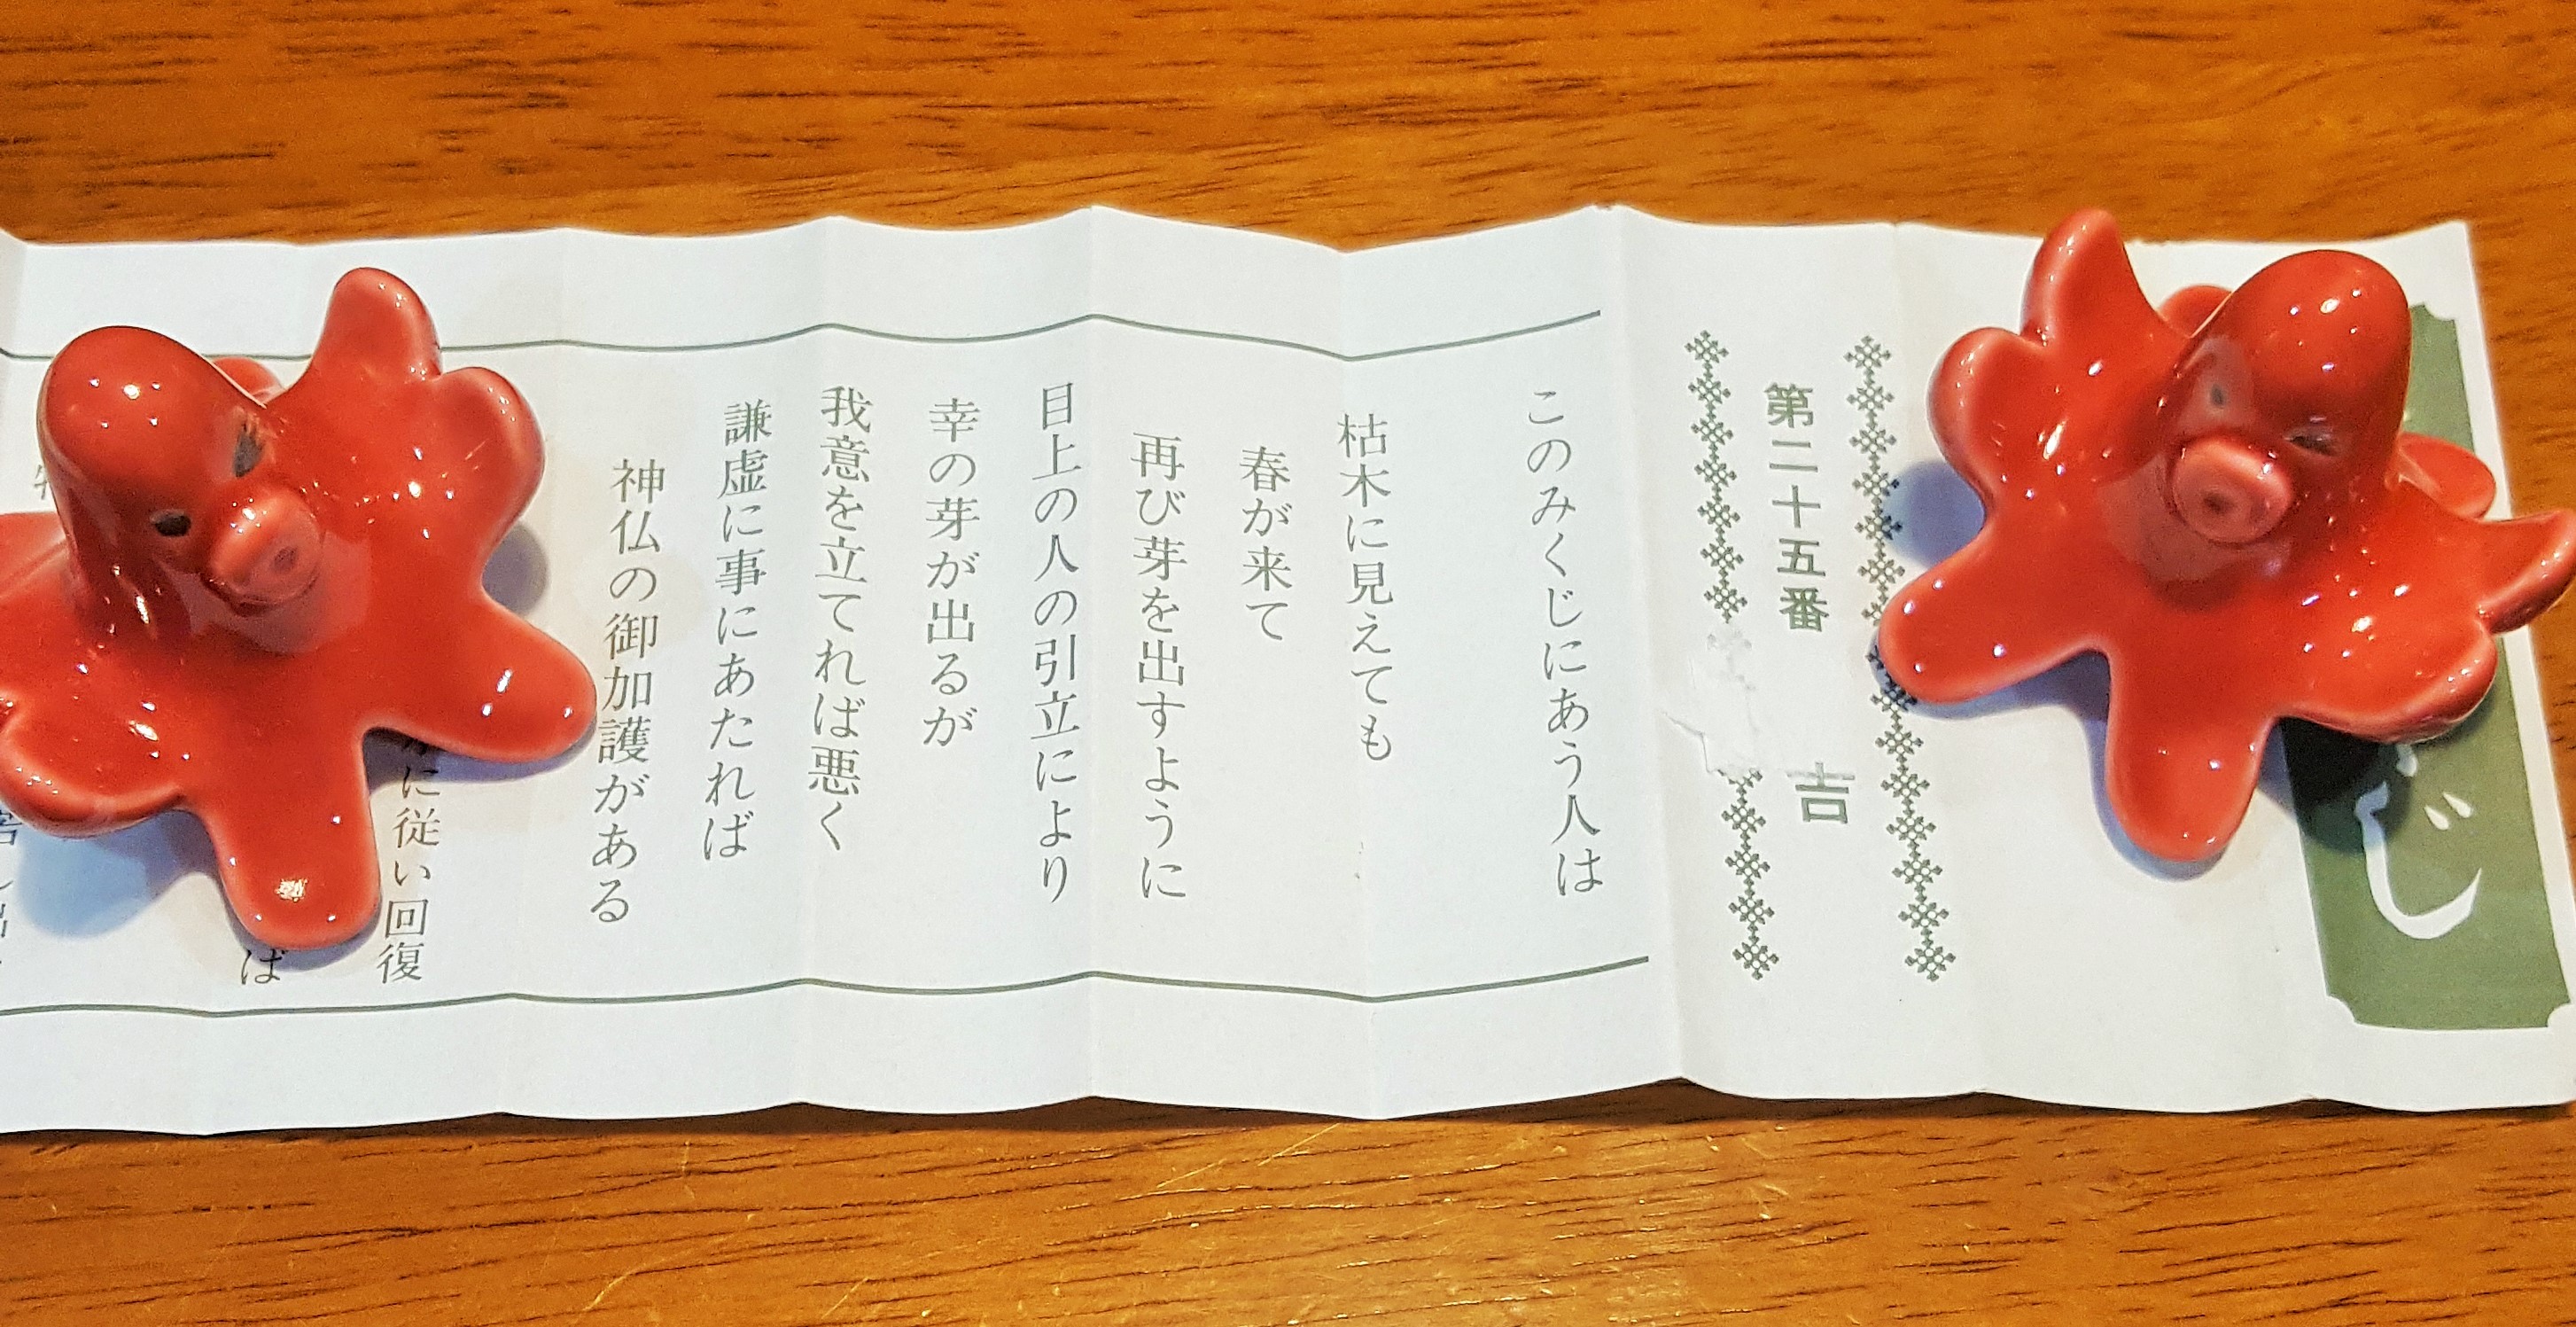 じ
第二十五番 吉
このみくじにあう人は
枯木に見えても
春が来て
再び芽を出すように
目上の人の引立により
幸の芽が出るが
我意を立てれば悪く
謙虚に事にあたれば
神仏の御加護がある
に従い回復
ば